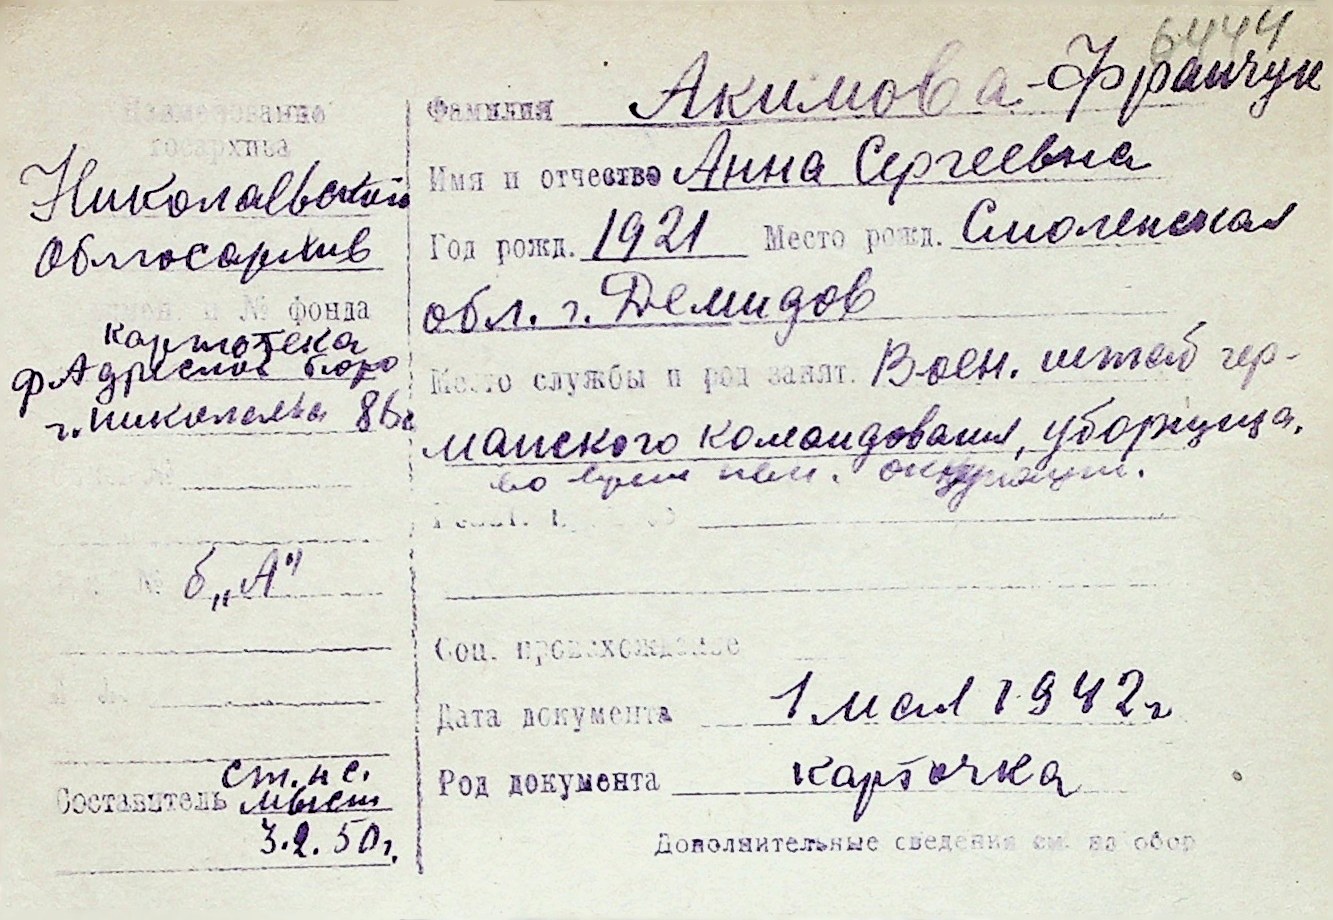 6444
Наименование
госархива
Николаевский
Облгосархив
и № фонда
картотека
фАдресной бюро
г. Николаева 86
№
№ б "А"
Составитель ст. н с.
3.2.50г.
Фамилия Акимова-Франчук
Имя и отчество Анна Сергеевна
Год рожд. 1921 Место рожд. Смоленская
обл. г. Демидов
Место службы и род занят. Воен. штаб гер-
манского командования, уборщица.
во время нем. оккупации.
Соц. происхождение
Дата документа 1 мая 1942 г
Род документа карточка
Дополнительные сведения см. на обор